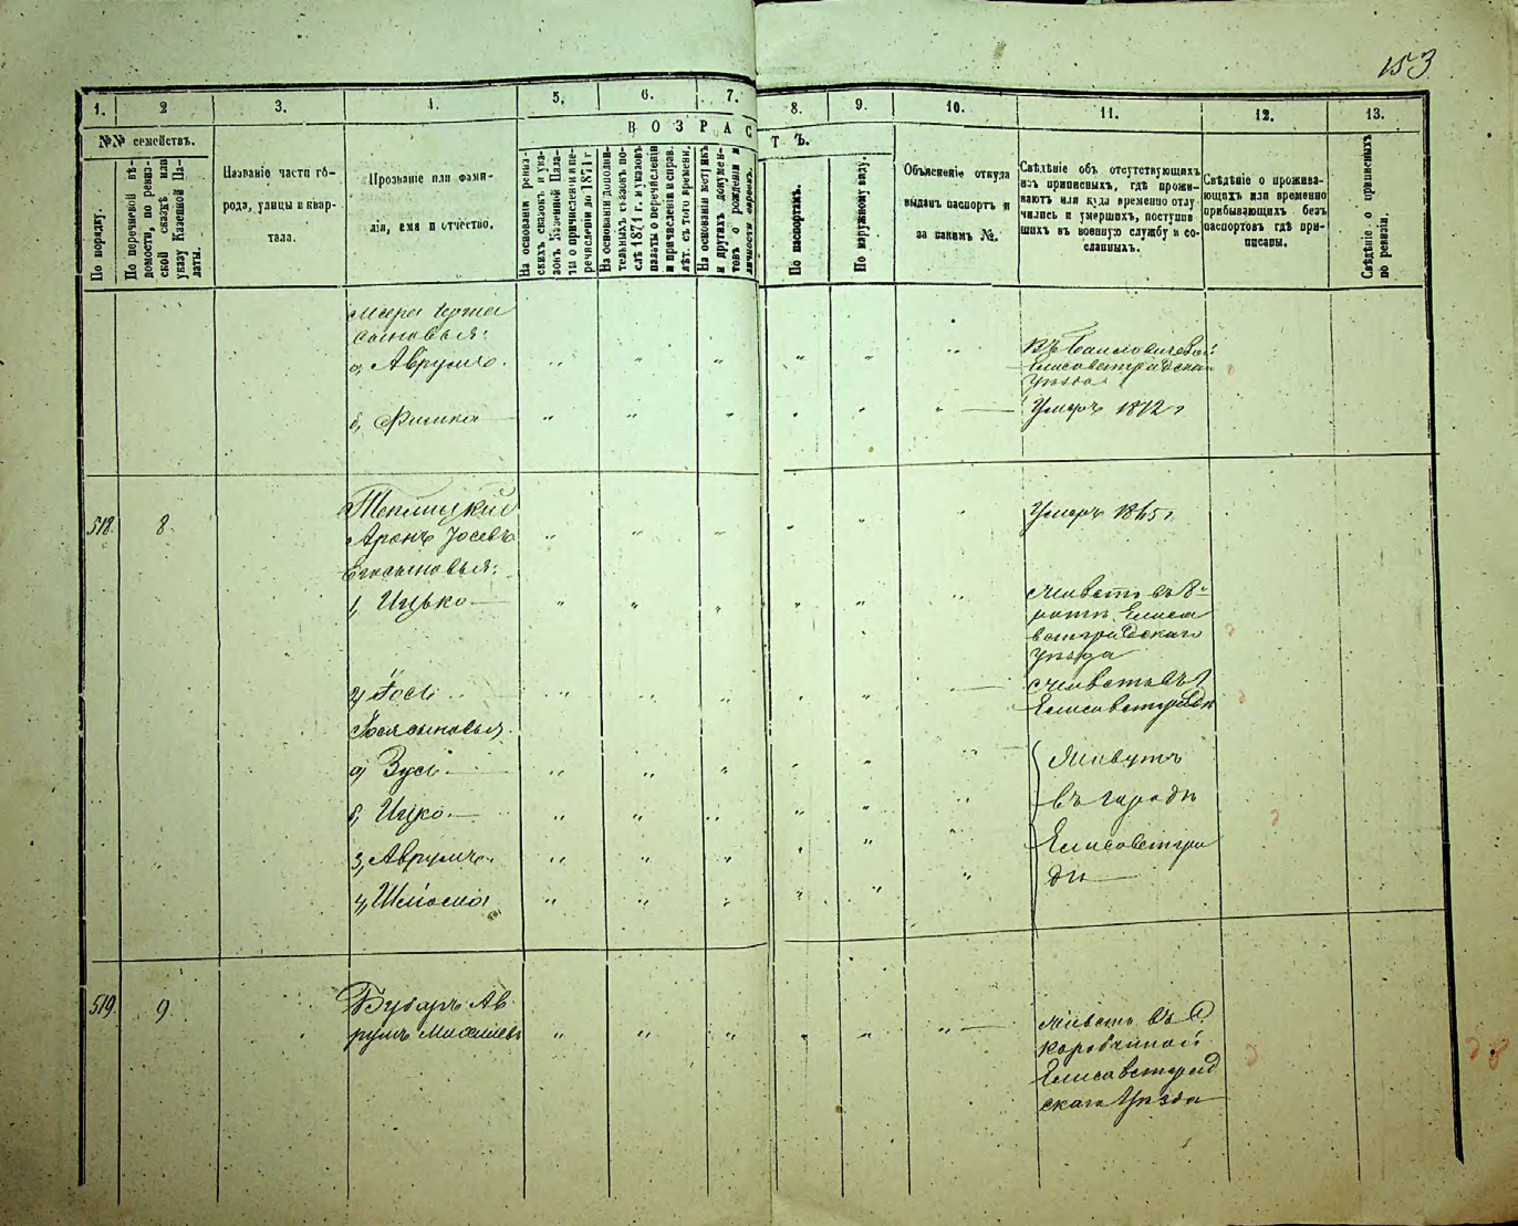 153
1. 2 3. 4. 5. 6. 7. 8. 9. 10. 11. 12. 13.
№№ семействъ.
ВОЗРАСТЪ.
По порядку.
По перечневой вѣ-
домости, по ревиз-
ской сказкѣ или
указу Казенной Па-
латы.
Названіе части го-
рода, улицы и квар-
тала.
Прозваніе или фами-
лія, имя и отчество.
На основаніи ревиз-
скихъ сказокъ и ука-
зовъ Казенной Пала-
ты о причисленіи и пе-
речисленіи до 1871 г.
На основаніи дополни-
тельныхъ сказокъ по-
слѣ 1871 г. и указовъ
палаты о перечисленіи
и причисленіи и справ.
лѣт. съ того времени.
На основаніи метрикъ
и другихъ докумен-
товъ о рожденіи и
личности евреевъ.
По паспортамъ.
По наружному виду.
Объясненіе откуда
выданъ паспортъ и
за какимъ №.
Свѣдѣніе объ отсутствующихъ
изъ приписныхъ, гдѣ прожи-
ваютъ или куда временно отлу
чились и умершихъ, поступив
шихъ въ военную службу и со-
сланныхъ.
Свѣдѣніе о прожива-
ющихъ или временно
прибывающихъ безъ
паспортовъ гдѣ при-
писаны.
Свѣдѣніе о приписныхъ
по ревизіи.
сыновья:
а, Аврумъ " " " " " "
Елисаветградска
уѣзда
б, Фишка " " " " " " Умеръ 1872 г
518. 8. Теплицкій
Аронъ Іосевъ " " " " " " Умеръ 1865 г
Его сыновья:
1, Ицько " " " " " " Живетъ въ 8й
ротѣ Елиса
ветградскаго
уѣзда
2, Іось " " " " " " Живетъ въ
Елисаветградѣ
Іося сыновья.
а, Зусь " " " " " " Живутъ
б, Ицко " " " " " " въ городѣ
3, Аврумъ " " " " " " Елисаветгра
4, Шлёома " " " " " " дѣ
519. 9. Бубаръ Ав
румъ " " " " " " Живетъ въ
Елисаветград
скаго уѣзда